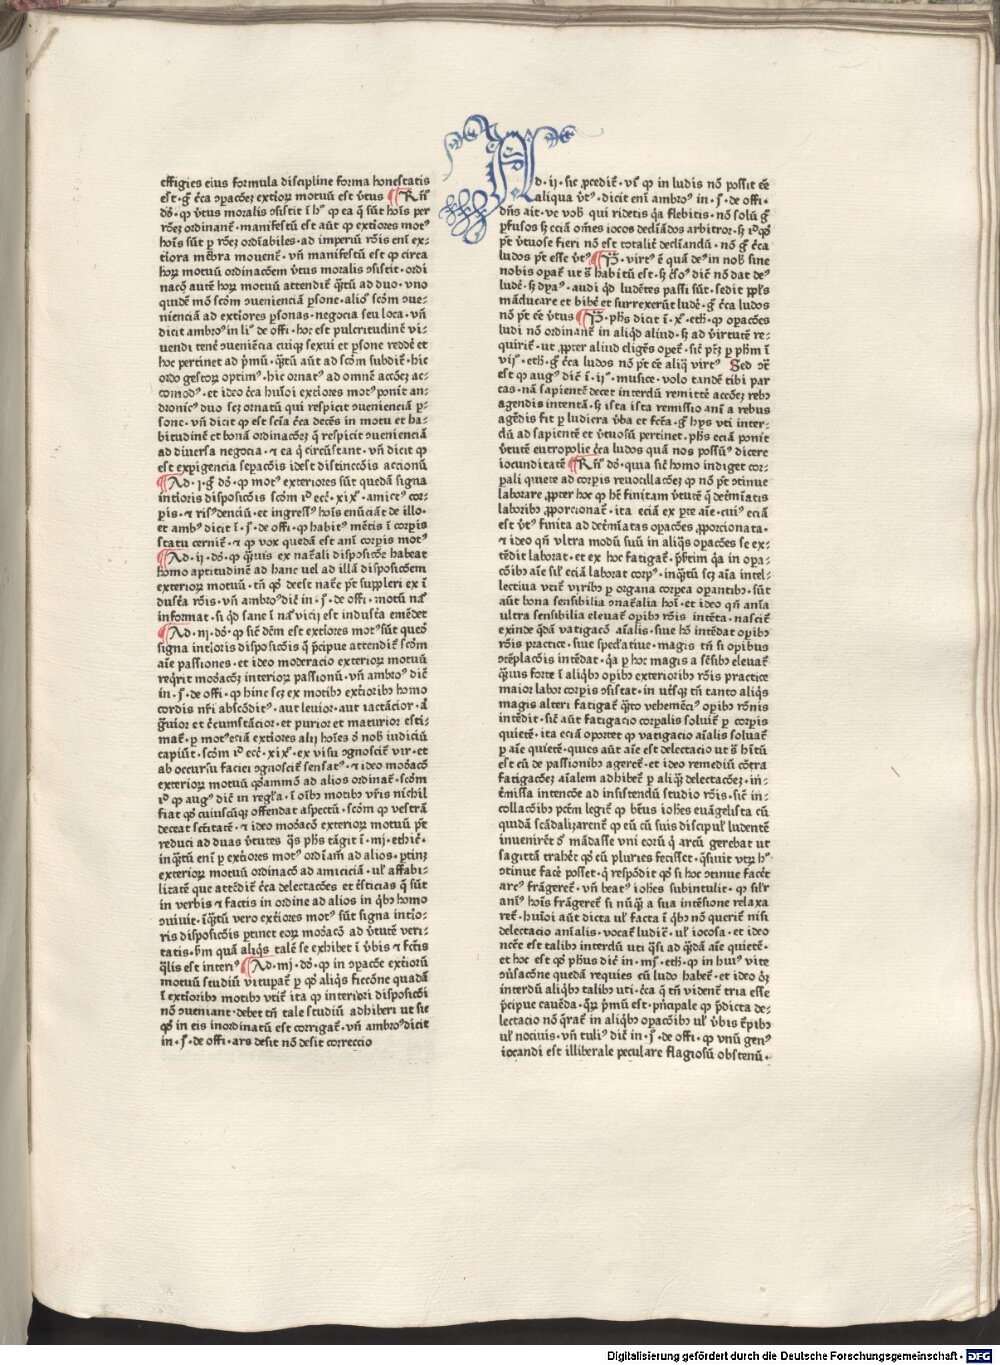 effigies eius formula discipline forma honestatis
est· g̃ c̃ca ꝯpacõeʒ extioꝝ motuũ est ꝟtus Rñ
dõ· ꝙ ꝟtus moralis ꝯsistit ĩ hͦ ꝙ ea q̃ sũt hoĩs per
rõeʒ ordinant̃· manifestũ est aũt ꝙ extiores motꝰ
hoĩs sũt ꝑ rõeʒ ordĩabiles· ad imperiũ rõis enĩ ex⸗
tiora mẽbra mouent̃· vñ manifestũ est ꝙ circa
hoꝝ motuũ ordinacõem ꝟtus moralis ꝯsistit· ordi
nacõ autẽ hoꝝ motuũ attendit̃ q̃tũ ad duo· vno
quidẽ mõ scõm ꝯuenienciã ꝑsone· alioˀ scõm ꝯue⸗
nienciã ad extiores ꝑsonas· negocia seu loca· vñ
dicit ambroˀ in liˀ de offi· hoc est pulcritudinẽ vi⸗
uendi tenẽ ꝯueniẽcia cuiqꝫ sexui et ꝑsone reddẽ et
hoc pertinet ad p̃mũ· q̃tũ aũt ad scõm subdit̃· hic
ordo gestoꝝ optimꝰ· hic ornatꝰ ad omnẽ accõeʒ ac⸗
comodꝰ· et ideo c̃ca huĩoi extiores motꝰ ponit an⸗
dronicꝰ duo scʒ ornatũ qui respicit ꝯuenienciã ꝑ⸗
sone· vñ dicit ꝙ est sciã c̃ca decẽs in motu et ha⸗
bitudinẽ et bonã ordinacõeʒ q̃ respicit ꝯuenienciã
ad diuersa negocia· ⁊ ea q̃ circũstant· vñ dicit ꝙ
est expigencia sepacõis idest distinccõis accionũ
Ad· i· g̃ dõ· ꝙ motꝰ exteriores sũt quedã signa
intioris disposicõis scõm iˀ ecc̃· xixˀ· amictꝰ cor⸗
ꝑis· ⁊ risꝰ denciũ· et ingressꝰ hoĩs enũciãt de illo·
et ambꝰ dicit ĩ· jˀ· de offi· ꝙ habitꝰ mẽtis ĩ corꝑis
statu cernit̃· ⁊ ꝙ vox quedã est anĩ corꝑis motꝰ
Ad· ii· dõ· ꝙ q̃uis ex nat̃ali disposicõe habeat
homo aptitudinẽ ad hanc uel ad illã disposicõem
exterioꝝ motuũ· tñ ꝙ deest nat̃e pt̃ suppleri ex ĩ
dust̃a rõis· vñ ambroˀ dic̃ in· jˀ· de offi· motũ nãˀ
informat· si q̃d sane ĩ nãˀ vicij est industã emẽdet
Ad· iij· dõ· ꝙ sic̃ dc̃m est extiores motꝰ sũt queõ
signa intioris disposicõis q̃ p̃cipue attendit̃ scõm
aĩe passiones· et ideo moderacio exterioꝝ motuũ
req̃rit moõacõʒ interioꝝ passionũ· vñ ambroˀ dic̃
in· jˀ· de offi· ꝙ hinc scʒ ex motibꝰ extioribꝰ homo
cordis nr̃i abscõditꝰ· aut leuior· aut iactãcior· ã
g̃uior et c̃cumstãcior· et purior et maturior esti⸗
mat̃· ꝑ motꝰ eciã extiores alij hoĩes ð nob̃ iudiciũ
capiũt· scõm iˀ ecc̃· xixˀ· ex visu ꝯgnoscit̃ vir· et
ab occursu faciei ꝯgnoscit̃ sensatꝰ· ⁊ ideo moõacõ
exterioꝝ motuũ quoãmõ ad alios ordinat̃· scõm
iˀ ꝙ augꝰ dic̃ in regl̃a· ĩ oĩbꝰ motibꝰ vr̃is nichil
fiat qõ cuiuscũqꝫ offendat aspectũ· scõm ꝙ vestrã
deceat sct̃itatẽ· ⁊ ideo moõacõ exterioꝝ motuũ pt̃
reduci ad duas ꝟtutes q̃s phs̃ tãgit ĩ· iiij· ethic̃·
inq̃tũ enĩ ꝑ extiores motꝰ ordĩam̃ ad alios· ꝑtinʒ
exterioꝝ motuũ ordinacõ ad amiciciã· ul̃ affabi⸗
litatẽ que attẽdit̃ c̃ca delectacões et t̃sticias q̃ sũt
in verbis ⁊ factis in ordine ad alios in q̃bꝰ homo
ꝯuiuit· ĩq̃tũ vero extiores motꝰ sũt signa intio⸗
ris disposicõis ꝑtinet eoꝝ moõacõ ad ꝟtutẽ veri⸗
tatis· ꝑm quã aliq̃s talẽ se exhibet ĩ ꝟbis ⁊ fc̃tis
q̃lis est interiꝰ Ad· iiij· dõ· ꝙ in ꝯpacõe extiõrũ
motuũ studiũ vitupat̃ ꝑ qõ aliq̃s ficcõne quadã
ĩ extioribꝰ motibꝰ vtit̃ ita ꝙ interiori disposicõi
nõ ꝯueniant· debet tñ tale studiũ adhiberi ut sic
qõ in eis inordinatũ est corrigat̃· vñ ambroˀ dicit
in· jˀ· de offi· ars desit nõ desit correccio
Ad· ij· sic ꝓcedit̃· vĩˀ ꝙ in ludis nõ possit c̃e
aliqua ꝟtꝰ· dicit enĩ ambroˀ in· jˀ· de offi·
dñs ait· ve vob̃ qui ridetis q̃a flebitis· nõ solũ g̃
ꝓfusos sʒ eciã om̃es iocos declĩados arbitror· sʒ iˀ qõ
pt̃ ꝟtuose fieri nõ est totalit̃ declĩandũ· nõ g̃ c̃ca
ludos pt̃ esse ꝟtꝰ P̃· virtꝰ ẽ quã deꝰ in nob̃ sine
nobis operat̃ ut s̃ habitũ est· sʒ c̃soˀ dic̃ nõ dat deꝰ
ludẽ· sʒ dyaˀ· audi q̃d ludẽtes passi sũt· sedit ppl̃s
mãducare et bibẽ et surrexerũt ludẽ· g̃ c̃ca ludos
nõ pt̃ c̃e ꝟtus P̃· phs̃ dicit ĩ· xˀ· eth̃· ꝙ opacões
ludi nõ ordinant̃ in aliq̃d aliud· sʒ ad ꝟtutẽ re⸗
quirit̃· ut ꝓpter aliud eligẽs opet̃· sic̃ pʒ ꝑ phm̃ ĩ
vijˀ· eth̃· g̃ c̃ca ludos nõ pt̃ c̃e aliq̃ virtꝰ Sed cõt̃
est ꝙ augꝰ dic̃ ĩ· ijˀ· musice· volo tandẽ tibi par
cas· nã sapientẽ decet interdũ remittẽ accõeʒ rebꝰ
agendis intentã· sʒ ista ista remissio anĩ a rebus
agẽdis fit ꝑ ludicra ꝟba et fc̃ta· g̃ hys vti inter⸗
dũ ad sapientẽ et ꝟtuosũ pertinet· phs̃ eciã ponit
ꝟtutẽ eutropolie c̃ca ludos quã nos possũꝰ dicere
iocunditatẽ Rñˀ dõ· quia sic̃ homo indiget cor⸗
ꝑali quiete ad corpis reuocillacõeʒ ꝙ nõ pt̃ ꝯtinue
laborare ꝓpter hoc ꝙ hʒ finitam ꝟtutẽ q̃ det̃mĩatis
laboribꝰ ꝓporcionat̃· ita eciã ex pte aĩe· cuiꝰ eciã
est ꝟtꝰ finita ad det̃mĩatas opacões ꝓporcionata·
⁊ ideo qñ vltra modũ suũ in aliq̃s opacões se ex⸗
tẽdit laborat· et ex hoc fatigat̃· p̃tim q̃a in opa⸗
cõibꝰ aĩe sil̃ eciã laborat corpꝰ· inq̃tũ scʒ aĩa intel⸗
lectiua vtit̃ viribꝰ ꝑ organa corpea opantibꝰ· sũt
aũt bona sensibilia ꝯnat̃alia hoĩ· et ideo qñ aĩa
ultra sensibilia eleuat̃ opibꝰ rõis intẽta· nascit̃
exinde q̃dã vatigacõ aĩalis· siue hõ intẽdat opibꝰ
rõis practice· siue specl̃atiue· magis tñ si opibus
ꝯtẽplacõis intẽdat· q̃a ꝑ hoc magis a sẽsibꝰ eleuat̃
q̃uis forte ĩ aliq̃bꝰ opibꝰ exterioribꝰ rõis practice
maior labor corpis ꝯsistat· in ut̃sqꝫ tñ tanto aliq̃s
magis alteri fatigat̃ q̃to vehemẽciꝰ opibꝰ rõnis
intẽdit· sic̃ aũt fatigacio corpalis soluit̃ ꝑ corpis
quietẽ· ita eciã oportet ꝙ vatigacio aĩalis soluat̃
ꝑ aĩe quietẽ· quies aũt aĩe est delectacio ut s̃ hĩtũ
est cũ de passionibꝰ ageret̃· et ideo remediũ cõtra
fatigacõeʒ aĩalem adhibet̃ ꝑ aliq̃ delectacõeʒ· in⸗
t̃missa intencõe ad insistendũ studio rõis· sic̃ in⸗
collacõibꝰ pc̃tm legit̃ ꝙ bt̃us ioh̃es euãgelista cũ
quidã scãdalizarent̃ ꝙ eũ cũ suis discipul̃ ludentẽ
inuenirẽt ðˀ mãdasse vni eorũ q̃ arcũ gerebat ut
sagittã trahẽt qõ cũ pluries fecisset· q̃siuit vtꝝ hͦ
ꝯtinue facẽ posset· q̃ respõdit qõ si hoc ꝯtinue facẽt
arcꝰ frãgeret̃· vñ beatꝰ ioh̃es subintulit· ꝙ sil̃r
anĩꝰ hoĩs frãgeret̃ si nũq̃ a sua intẽsione relaxa
ret̃· huĩoi aũt dicta ul̃ facta ĩ q̃bꝰ nõ querit̃ nisi
delectacio anĩalis· vocat̃ ludic̃ ul̃ iocosa· et ideo
ncc̃e est talibꝰ interdũ uti q̃si ad q̃dã aĩe quietẽ·
et hoc est qõ phũs dic̃ in· iiijˀ· eth̃· ꝙ in huiꝰ vite
ꝯũsacõne quedã requies cũ ludo habet̃· et ideo õʒ
interdũ aliq̃bꝰ talibꝰ uti· c̃ca q̃ tñ vident̃ tria esse
p̃cipue cauẽda· q̃ꝝ p̃mũ est· p̃ncipale ꝙ p̃dicta de⸗
lectacio nõ q̃rat̃ in aliq̃bꝰ opacõibꝰ ul̃ ꝟbis t̃pibꝰ
ul̃ nociuis· vñ tuliꝰ dic̃ in· jˀ· de offi· ꝙ vnũ genꝰ
iocandi est illiberale peculare flagiosũ obscenũ·
Digitalisierung gefördert durch die Deutsche Forschungsgemeinschaft - DFG